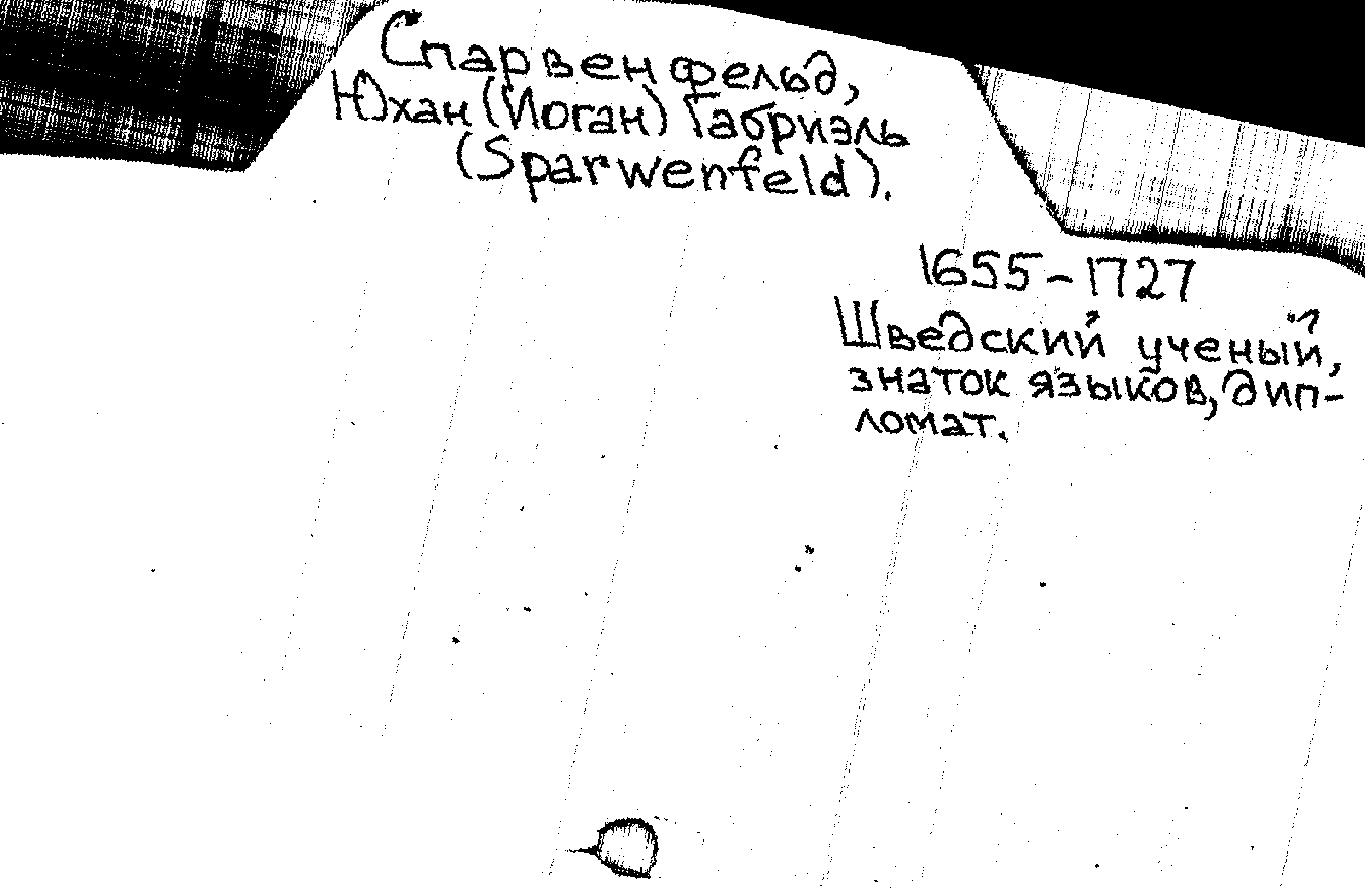 Спарвенфельд,
Юхан (Иоган) Габриэль
(Sparwenfeld).
1655-1727
Шведский ученый,
знаток языков, дип-
ломат.